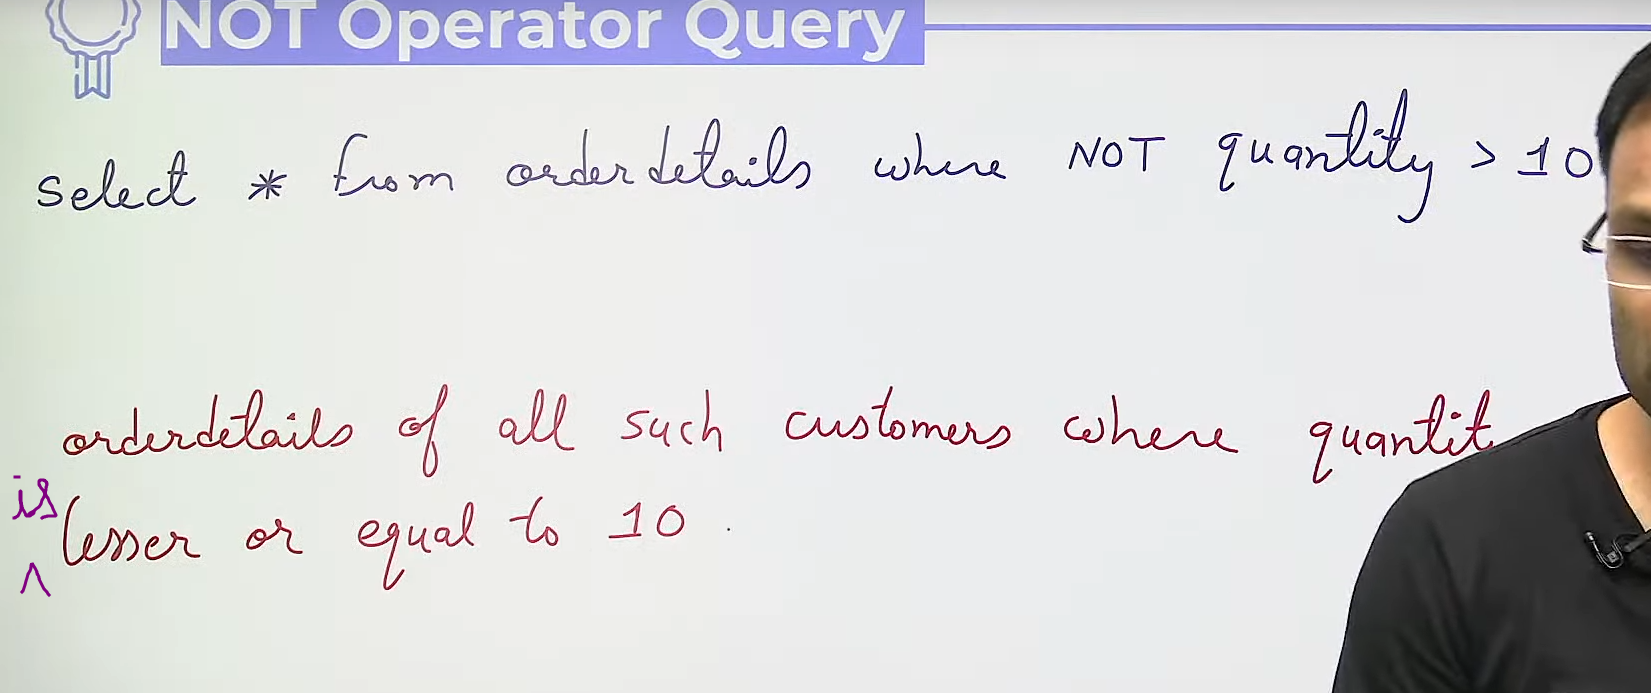 NOT Operator Query
select * from orderdetails where NOT quantity > 10
orderdetails of all such customers where quantit
is lesser or equal to 10.
^